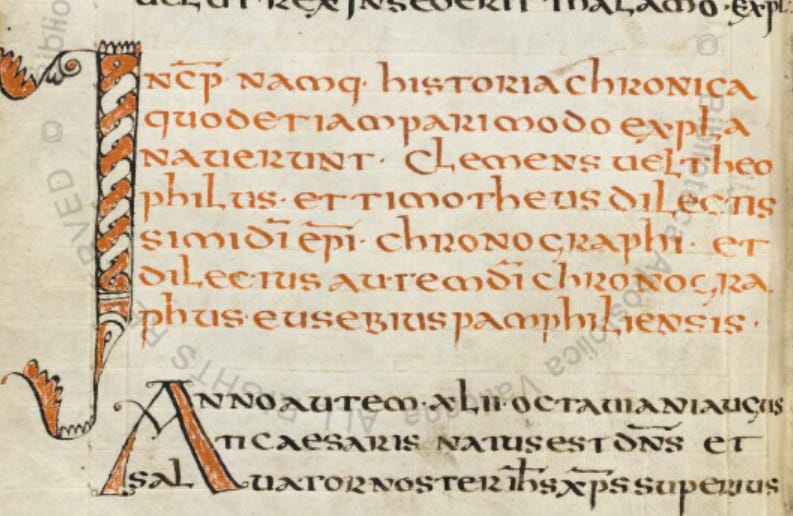 uelut rex insederit thalamo · expl·
Inc̄p̄ namq· historia chronica
quod etiam pari modo expla
nauerunt · clemens uel theo
philus · et timotheus dilectis
simi dī ēpī · chronographi · et
dilectus autem dī chronogra
phus · eusebius pamphiliensis ·
Anno autem · xlii · octauiani augus
ti caesaris natus est dn̄s et
saluator noster ih̄s xp̄s superius
© Biblioteca Apostolica Vaticana ALL RIGHTS RESERVED © Biblio